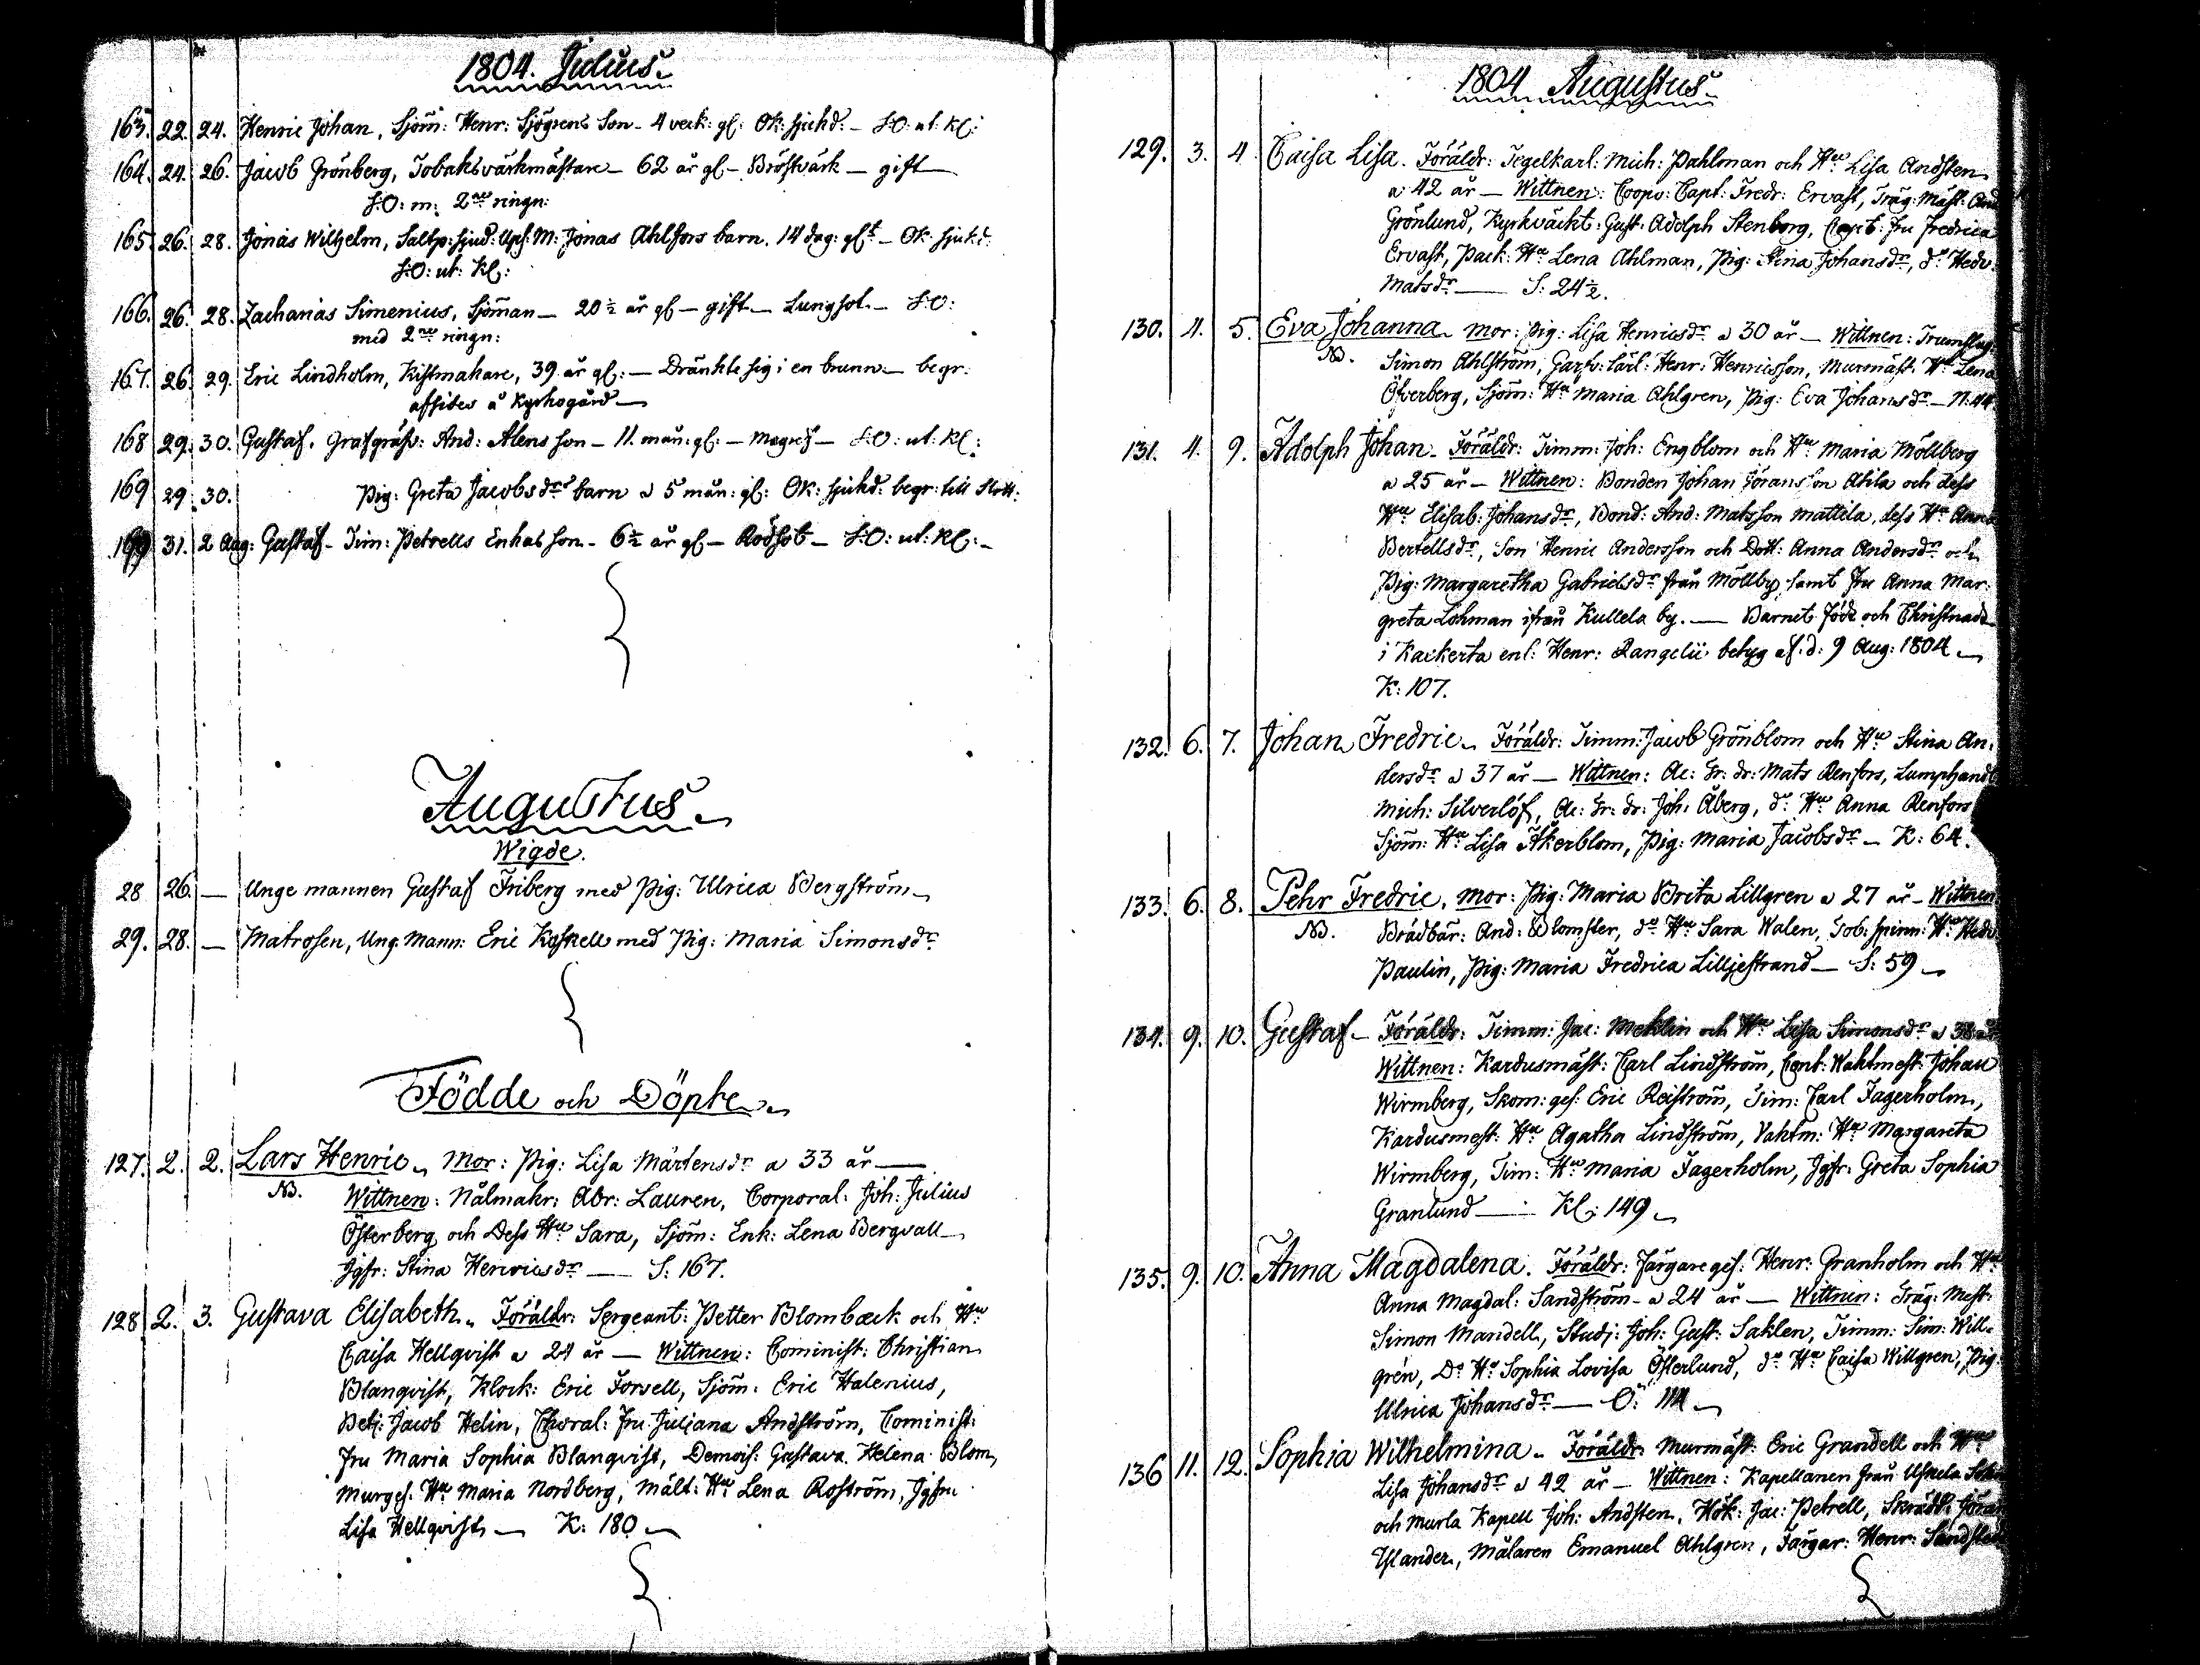 1804. Julius.
163. 22. 24. Henric Johan, Sjöm: Henr: Sjögrens Son - 4 veck: gl: Ok: sjukd: - S:O: ut: Kl:
164. 24. 26. Jacob Grönberg, Tobaksvärkmästare - 62 år gl - Bröstvärk - gift
S:O: m: 2ne ringn:
165. 26. 28. Jonas Wilhelm, Saltp: sjud: Ups: M: Jonas Ahlfors barn. 14 dag: glt - Ok: sjukd:
S:O: ut: Kl:
166. 26. 28. Zacharias Simenius, Sjöman - 20 ½ år gl - gift - Lungsot - S:O:
med 2ne ringn:
167. 26. 29. Eric Lindholm, Kistmakare, 39 år gl: - Dränkte sig i en brunn - begr:
afsides å Kyrkogård
168 29. 30. Gustaf. And: Alens son - 11. mån: gl: - - S:O: ut: Kl:
169 29. 30. Pig: Greta Jacobsdrs barn a 5 mån: gl: Ok: sjukd: begr: till Slott:
31. 2 Aug: Gustaf - Tim: Petrells Enkas son - 6½ år gl - Rödsot - S:O: ut: Kl: -
Augustus.
Wigde.
28 26. - Unge mannen Gustaf Friberg med Pig: Ulrica Bergström
29. 28. - Matrosen, Ung: Mann: Eric med Pig: Maria Simonsdr
Födde och Döpte
127. 2. 2. Lars Henric, Mor: Pig: Lisa Mårtensdr a 33 år
NB. Wittnen: Nålmakr: Abr: Lauren, Corporal: Joh: Julius
Österberg och Dess Hu Sara, Sjöm: Enk: Lena Bergvall
Jgfr: Stina Henricsdr - S: 167.
128 2. 3. Gustava Elisabeth. Föräldr: Sergeant: Petter Blombæck och Hu
Caisa Hellqvist a 24 år - Wittnen: Cominist: Christian
Blanqvist, Klock: Eric Forsell, Sjöm: Eric Halenius,
Betj: Jacob Helin, Fru Juliana Andström, Cominist:
Fru Maria Sophia Blanqvist, Demois: Gustava Helena Blom,
Murges. Hu Maria Nordberg, Mält: Hu Lena Roström, Jgfru
Lisa Hellqvist - K: 180
1804 Augustus
129. 3. 4. Caisa Lisa. Föräldr: Tegelkarl: Mich: Pahlman och Hu Lisa Andsten
a 42 år - Wittnen: Coopv: Capt: Fredr: Ervast, Träg: Mäst: And
Grönlund, Kyrkväckt: Gust: Adolph Stenborg, Capt: Fru Fredrica
Ervast, Pack: Hu Lena Ahlman, Pig: Stina Johansdr, do Hedv:
Matsdr - S: 24½.
130. 4. 5. Eva Johanna - Mor: Pig: Lisa Henricsdr a 30 år - Wittnen: Trumslag:
NB. Simon Ahlström, Garfv: lärl: Henr: Henricsson, Murmäst: Hu Lena
Öfverberg, Sjöm: Hu Maria Ahlgren, Pig: Eva Johansdr - N: 44
131. 4. 9. Adolph Johan - Föräldr: Timm: Joh: Engblom och Hu Maria Möllberg
a 25 år - Wittnen: Bonden Johan Göransson Ahla och dess
Hu Elisab: Johansdr, Bond: And: Matsson Mattila, dess Hu Anna
Bertellsdr, Son Henric Andersson och Dott: Anna Andersdr och
Pig: Margaretha Gabrielsdr från Möllby samt Fru Anna Mar-
greta Lohman ifrån Kullela by. - Barnet födt och Christnadt
i Kackerta enl: Henr: Rangelii betyg af d: 9 Aug: 1804
K: 107.
132. 6. 7. Johan Fredric. Föräldr: Timm: Jacob Grönblom och Hu Stina An-
dersdr a 37 år - Wittnen: Ac: Gr: dr: Mats Renfors, Lumphandl
Mich: Silverlöf, Ac: Gr: dr: Joh: Åberg, do Hu Anna Renfors
Sjöm: Hu Lisa Åkerblom, Pig: Maria Jacobsdr - K: 64.
133. 6. 8. Pehr Fredric. Mor: Pig: Maria Brita Lillgren a 27 år - Wittnen
NB. Brädbär: And: Blomster, do Hu Sara Walen, Tob: spinn: Hu Hedv
Paulin, Pig: Maria Fredrica Lilljestrand - S: 59
134. 9. 10. Gustaf - Föräldr: Timm: Jac: Meklin och Hu Lisa Simonsdr a 38 år
Wittnen: Kardusmäst: Carl Lindström, Cont: Wahtmest: Johan
Wirmberg, Skom: ges: Eric Reiström, Tim: Carl Fagerholm,
Kardusmest: Hu Agatha Lindström, Vahtm: Hu Margareta
Wirmberg, Tim: Hu Maria Fagerholm, Jgfr: Greta Sophia
Granlund - Kl: 149
135. 9. 10. Anna Magdalena. Föräldr: Färgare ges: Henr: Granholm och Hu
Anna Magdal: Sandström - a 24 år - Wittnen: Träg: Mest:
Simon Mandell, Studj: Joh: Gust: Saklen, Timm: Sim: Will-
gren, Do Hu Sophia Lovisa Österlund, do Hu Caisa Willgren, Pig
Ulrica Johansdr - Ö:
136 11. 12. Sophia Wilhelmina - Föräldr: Murmäst: Eric Grandell och Hu
Lisa Johansdr a 42 år - Wittnen: Kapellanen från Uskela
och Murla Kapell Joh: Andsten, Hök: Jac: Petrell, Skrädd: Göran
Ylander, Målaren Emanuel Ahlgren, Färgar: Henr: